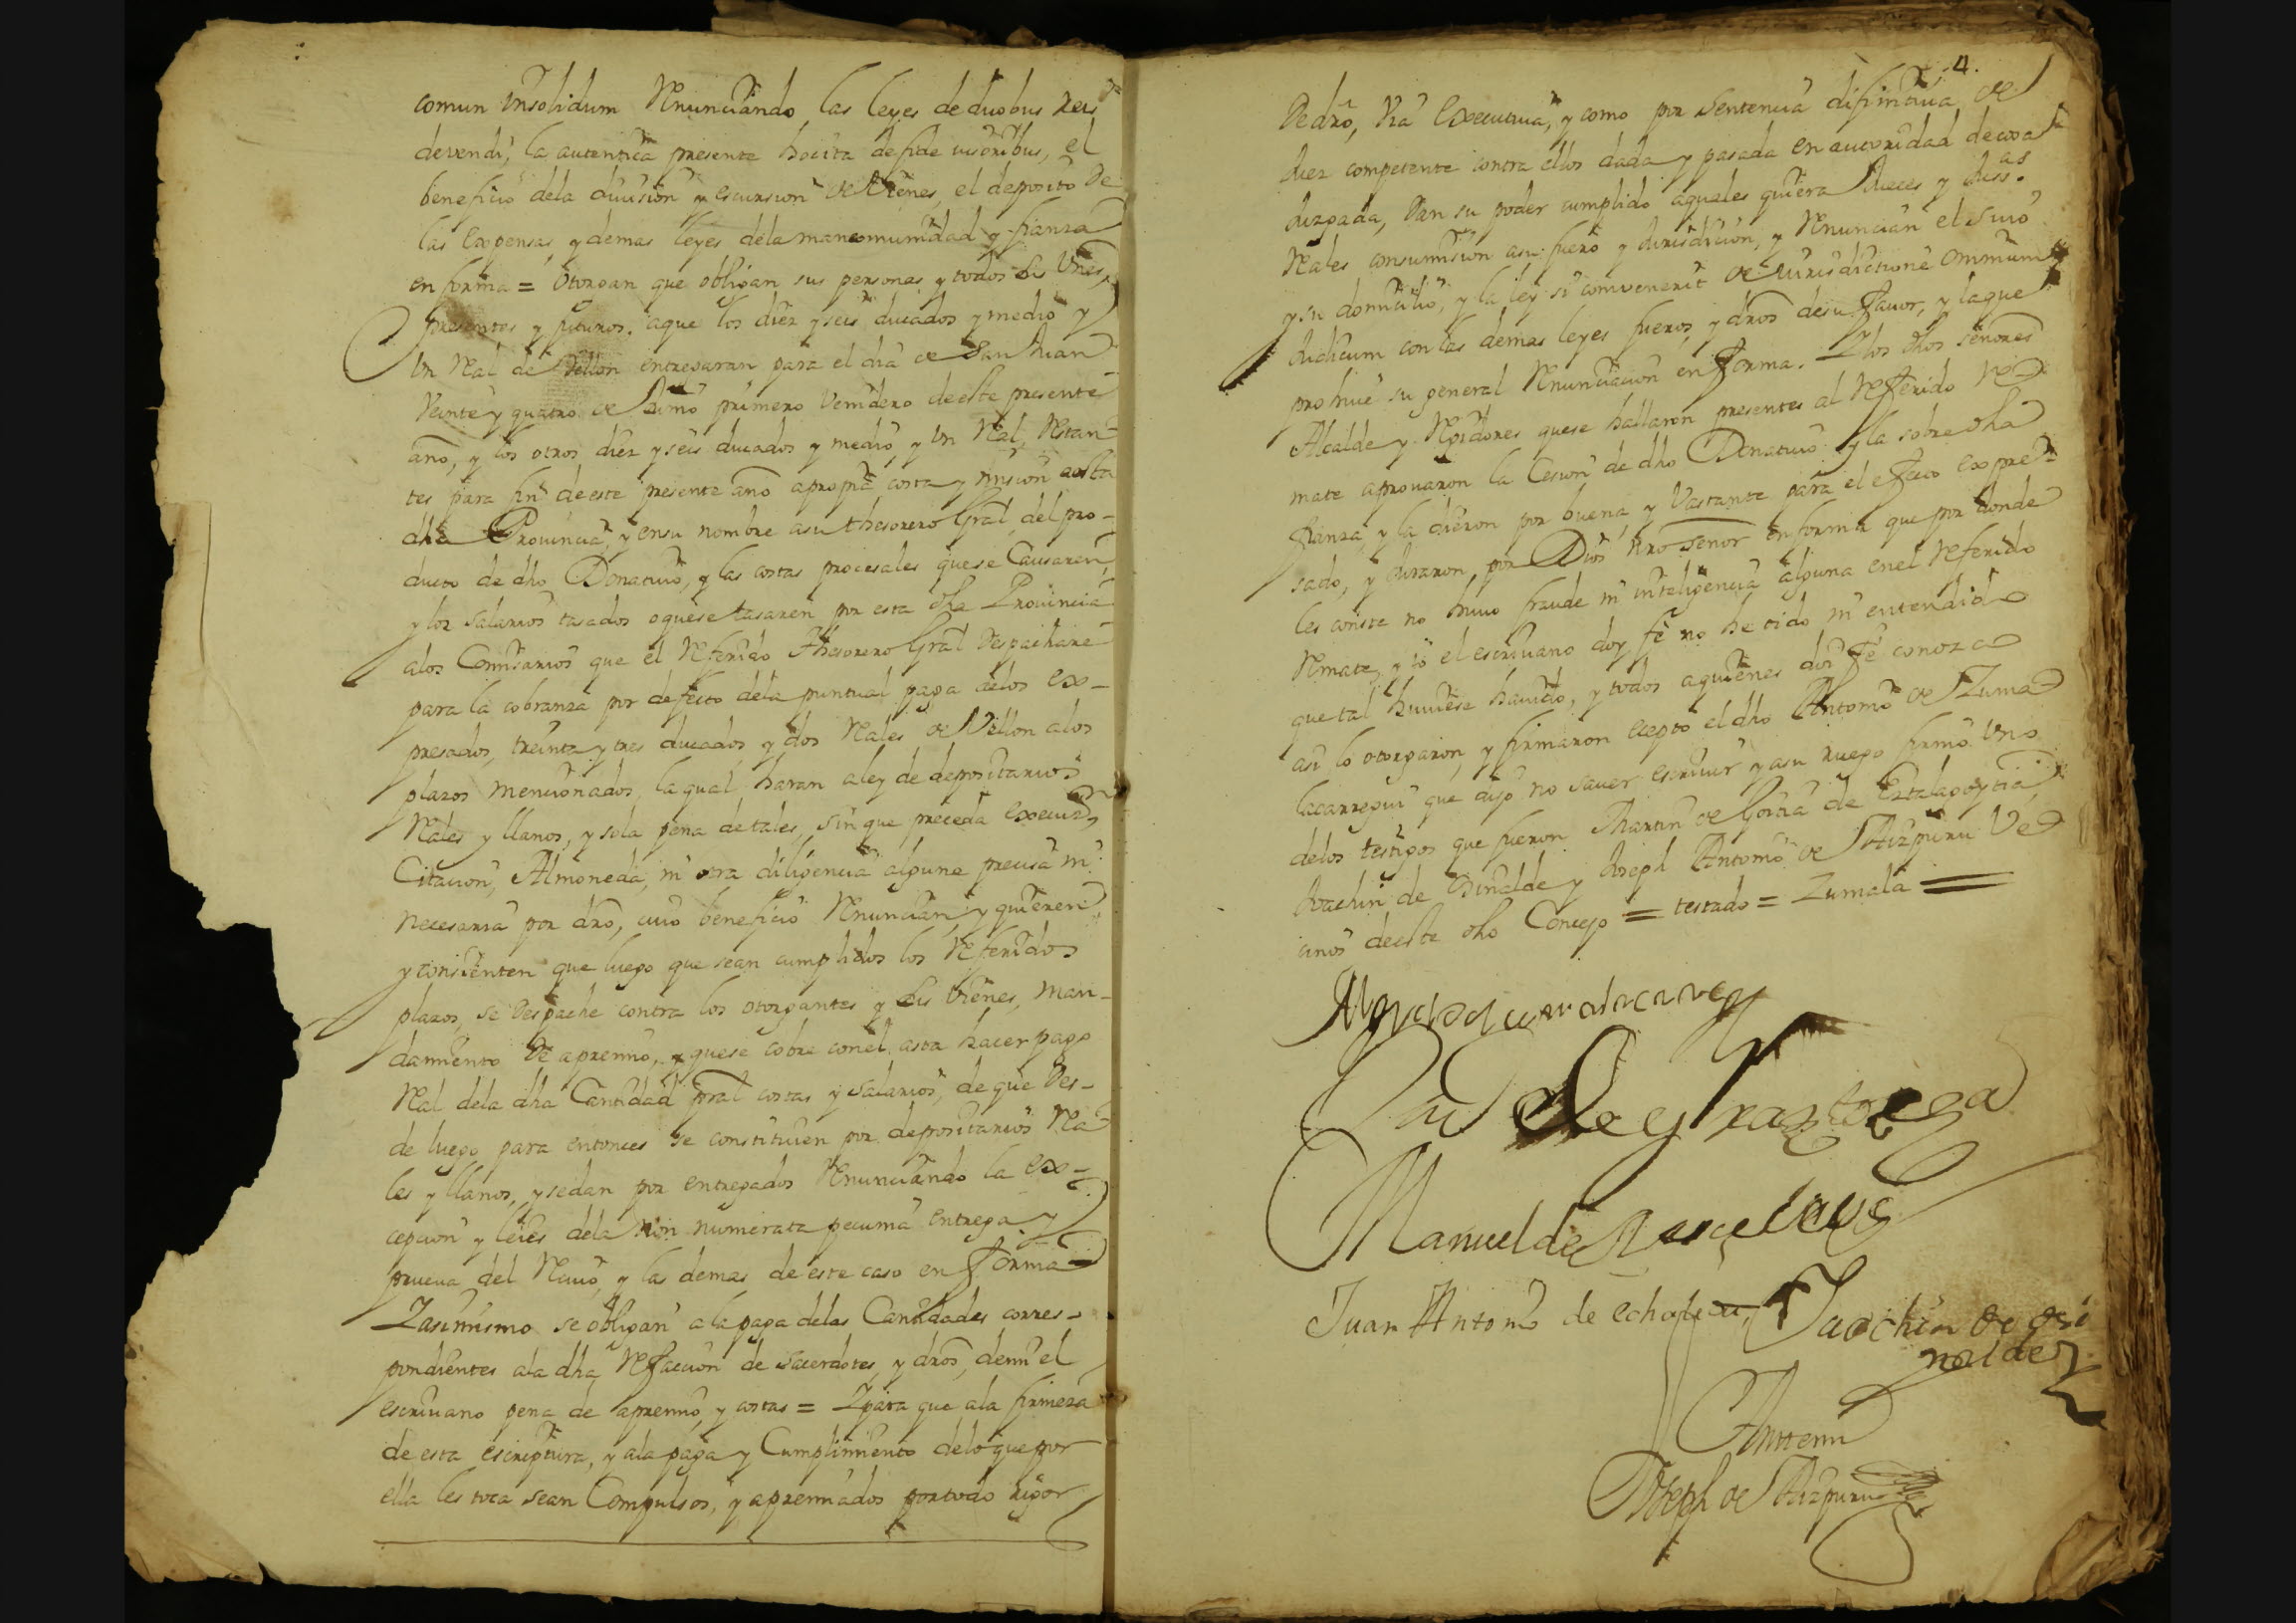 comun insolidum Renunciando las leyes de duobus reis
devendi, la autentica presente hocita de fide iusoribus, el
beneficio dela diuision y escursion de Vienes, el deposito De
las expensas, y demas leyes dela mancomunidad y fianza
en forma = Otorgan que obligan sus personas y todos sus Vnes,
presentes y futuros. aque los diez y seis ducados y medio y
Vn Real de Vellon entregaran para el dia de San Juan
Veinte y quatro de Junio primero Venidero de este presente
año, y los otros diez y seis ducados y medio, y Vn Real, Restan
tes para fin de este presente año apropia costa y mision aesta
dha Prouincia, y ensu nombre asu thesorero Gral del pro-
ducto de dho Donatiuo, y las costas procesales quese Causaren,
y los salarios tasados oquese tasaren por esta dha Prouincia
alos Comisarios que el Referido Thesorero Gral Despachare
para la cobranza por defecto dela puntual paga delos ex-
presados, treinta y tres ducados, y dos Reales de Vellon alos
plazos mencionados, la qual haran aley de depositarios
Reales y llanos, y sola pena de tales, sin que preceda
Citacion, Almoneda, ni otra diligencia alguna precisa ni
necesaria por dro, cuio beneficio Renuncian, y quieren
y consienten que luego que sean cumplidos los Referidos
plazos, se despache contra los otorgantes y sus Vienes, man-
damiento De apremio, y quese cobre conel, asta hacer pago
Real dela dha Cantidad pral costas y salarios, de que Des-
de luego para entonces se constituien por depositarios Rea
les y llanos, y sedan por entregados Renunciando la ex-
cepcion y leies dela non numerata pecunia entrega y
prueua del Reciuo, y las demas de este caso en forma =
Yasimismo se obligan ala paga delas Cantidades corres-
pondientes ala dha Refacion de sacerdotes, y dros, demi el
escriuano pena de apremio y costas = Ypara que ala firmeza
de esta escriptura, y ala paga y Cumplimiento delo que por
ella les toca sean Compulsos, y apremiados portodo rigor
4.
De dro, Via Executiua, y como por Sentencia difinitiua de
Juez competente contra ellos dada y pasada en autoridad decosa
Juzgada, Dan su poder cumplido aquales quiera Jueces y Juss.as
Reales consumision asu fuero y Jurisdicion, y Renuncian el suio
y su domicilio, y la ley si convenerit de iurisdictione omnium
Judicum con las demas leyes fueros, y dros desu fauor, y laque
prohiue su general Renunciacion en forma. Y los dhos señores
Alcalde y Rejidores quese hallaron presentes al Referido Re-
mate aprouaron la Cesion de dho Donatiuo y la sobre dha
fianza, y la dieron por buena y Vastante para el efecto expre-
sado, y Juraron por Dios nro señor en forma que por donde
les consta no huuo fraude ni inteligencia alguna enel Referido
Remate, y io el escriuano doy fe no he oido ni entendido
que tal huuiese hauido, y todos aquienes doi fe conozco
asi lo otorgaron, y firmaron excepto el dho Antonio de Zuma
lacarregui que dijo no sauer escriuir y asu ruego firmo Vno
delos testigos que fueron Martin de Goxia de
Joachin de Girialde y Joseph Antonio de Aizpuru Ve
cinos deeste dho Concejo = testado = Zumala =
Manuel de
Juan Antonio de
Joachin de Giri
nalde
Antemi
Joseph de Aizpuru